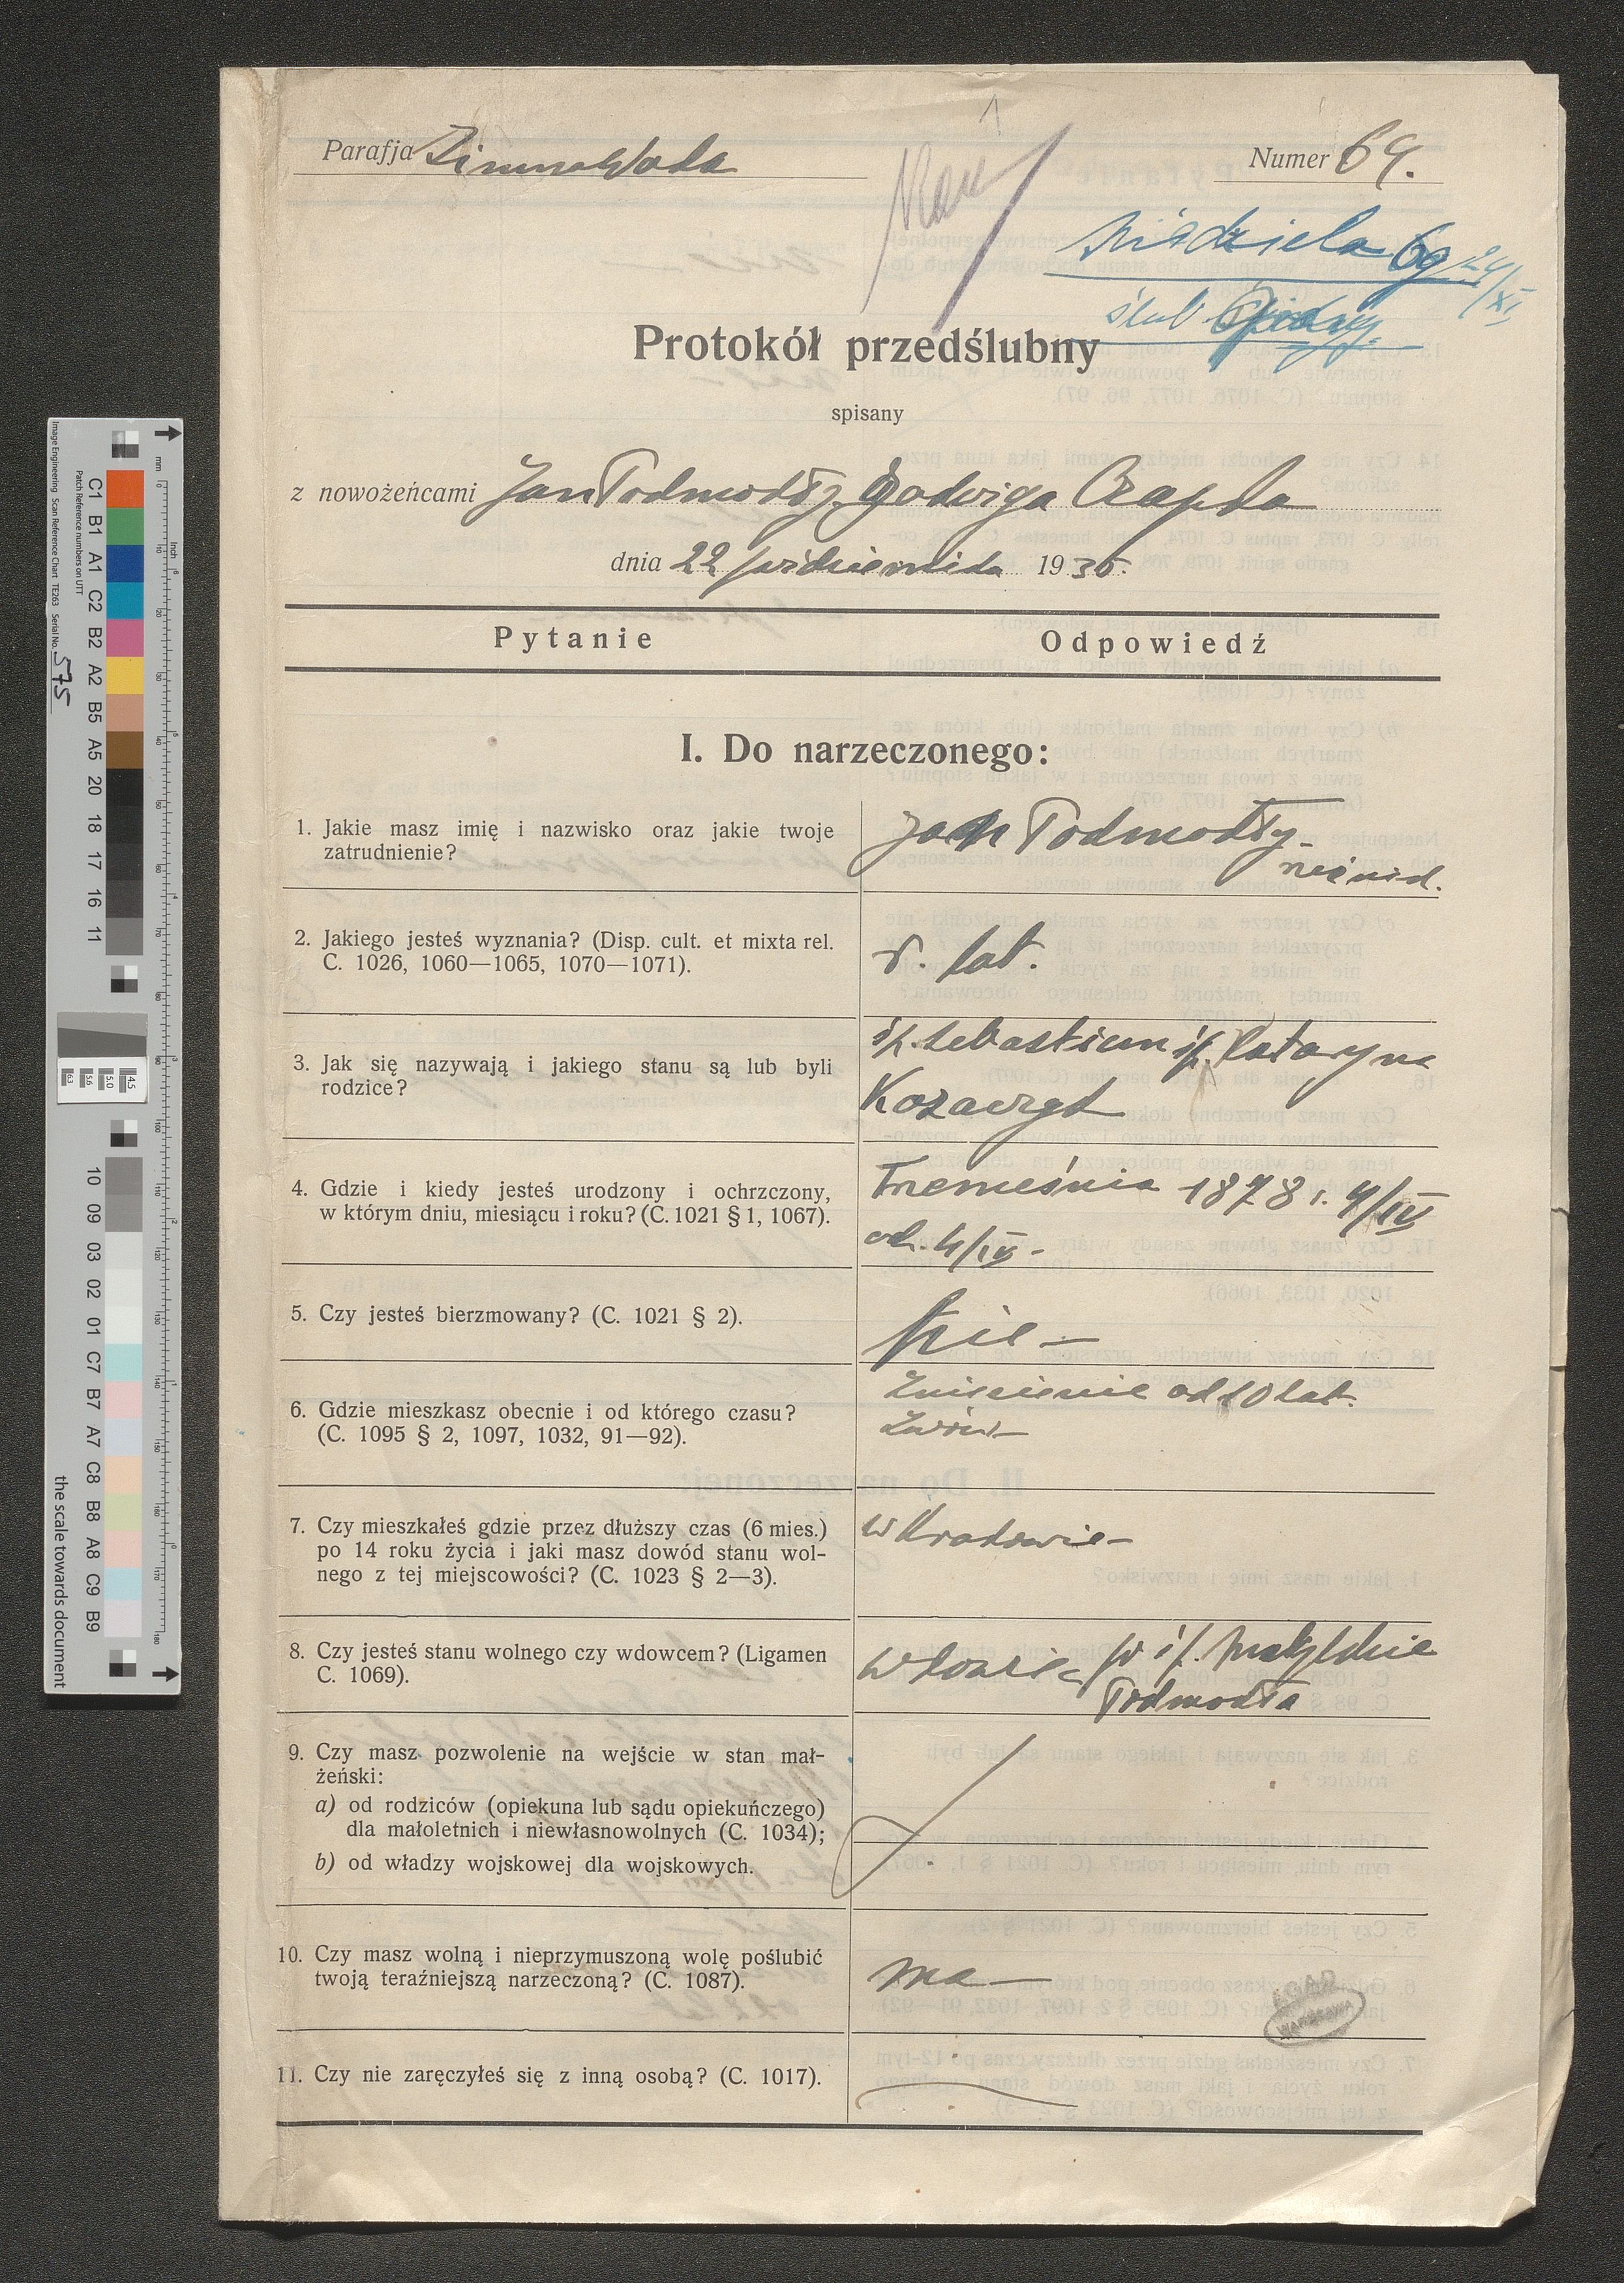 Parafja Zimna Woda
Numer 69.
niedziela 69 24/XI
ślub
Protokół przedślubny
spisany
z nowożeńcami Jan Podmodły. Jadwiga Czapla
dnia 22 października 1935.
Pytanie
Odpowiedź
I. Do narzeczonego:
1. Jakie masz imię i nazwisko oraz jakie twoje
zatrudnienie?
Jan Podmodły
2. Jakiego jesteś wyznania? (Disp. cult. et mixta rel.
C. 1026, 1060—1065, 1070—1071).
r. lat.
3. Jak się nazywają i jakiego stanu są lub byli
rodzice?
śp. Sebastian śp. Kataryna
4. Gdzie i kiedy jesteś urodzony i ochrzczony,
w którym dniu, miesiącu i roku? (C. 1021 § 1, 1067).
Trzemeśnia 1878 r. 4/IV
och. 4/IV -
5. Czy jesteś bierzmowany? (C. 1021 § 2).
Nie —
6. Gdzie mieszkasz obecnie i od którego czasu?
(C. 1095 § 2, 1097, 1032, 91—92).
Zniesienie od 10 lat.
Lwów —
7. Czy mieszkałeś gdzie przez dłuższy czas (6 mies.)
po 14 roku życia i jaki masz dowód stanu wol-
nego z tej miejscowości? (C. 1023 § 2—3).
w Krakowie —
8. Czy jesteś stanu wolnego czy wdowcem? (Ligamen
C. 1069).
wdowiec po śp. Matyldzie
Podmodła
9. Czy masz pozwolenie na wejście w stan mał-
żeński:
a) od rodziców (opiekuna lub sądu opiekuńczego)
dla małoletnich i niewłasnowolnych (C. 1034);
b) od władzy wojskowej dla wojskowych.
10. Czy masz wolną i nieprzymuszoną wolę poślubić
twoją teraźniejszą narzeczoną? (C. 1087).
ma —
AGAD
WARSZAWA
11. Czy nie zaręczyłeś się z inną osobą? (C. 1017).
Image Engineering Scan Reference Chart TE263 Serial No. 575
Patch Reference numbers on UTT
C1 B1 A1 C2 B2 A2 B5 A5 20 18 17 16 11
10 09 03 02 01 C7 B7 A7 C8 B8 A8 C9 B9
the scale towards document